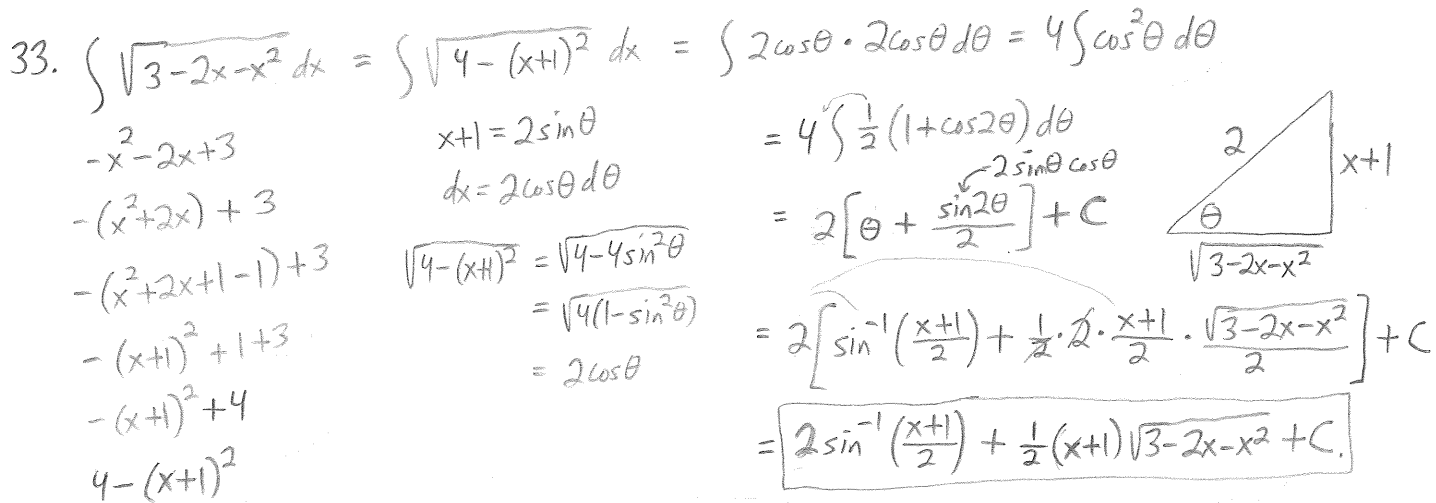 33. ∫ √(3-2x-x²) dx = ∫ √(4-(x+1)²) dx = ∫ 2cosθ • 2cosθ dθ = 4∫cos²θ dθ
-x²-2x+3
-(x²+2x)+3
-(x²+2x+1-1)+3
-(x+1)²+1+3
-(x+1)²+4
4-(x+1)²
x+1=2sinθ
dx=2cosθdθ
√(4-(x+1)²) = √(4-4sin²θ)
= √(4(1-sin²θ))
= 2cosθ
= 4∫ 1/2 (1+cos2θ)dθ
2sinθcosθ
= 2[θ + sin2θ/2] + C
2
x+1
θ
√(3-2x-x²)
= 2[sin⁻¹((x+1)/2) + 1/2 · 2 · (x+1)/2 · √(3-2x-x²)/2] + C
= 2sin⁻¹((x+1)/2) + 1/2 (x+1)√(3-2x-x²) + C.